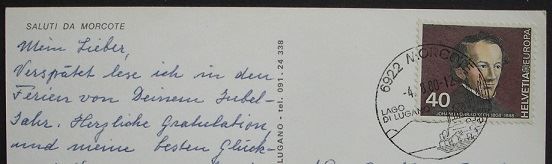 SALUTI DA MORCOTE
Mein Lieber,
Verspätet lese ich in den
Ferien von Deinem Jubel-
Jahr. Herzliche Gratulation
und meine besten Glück-
LUGANO - tel. 091.24 338
6922 MORCOTE
LAGO
DI LUGANO
40
HELVETIA EUROPA